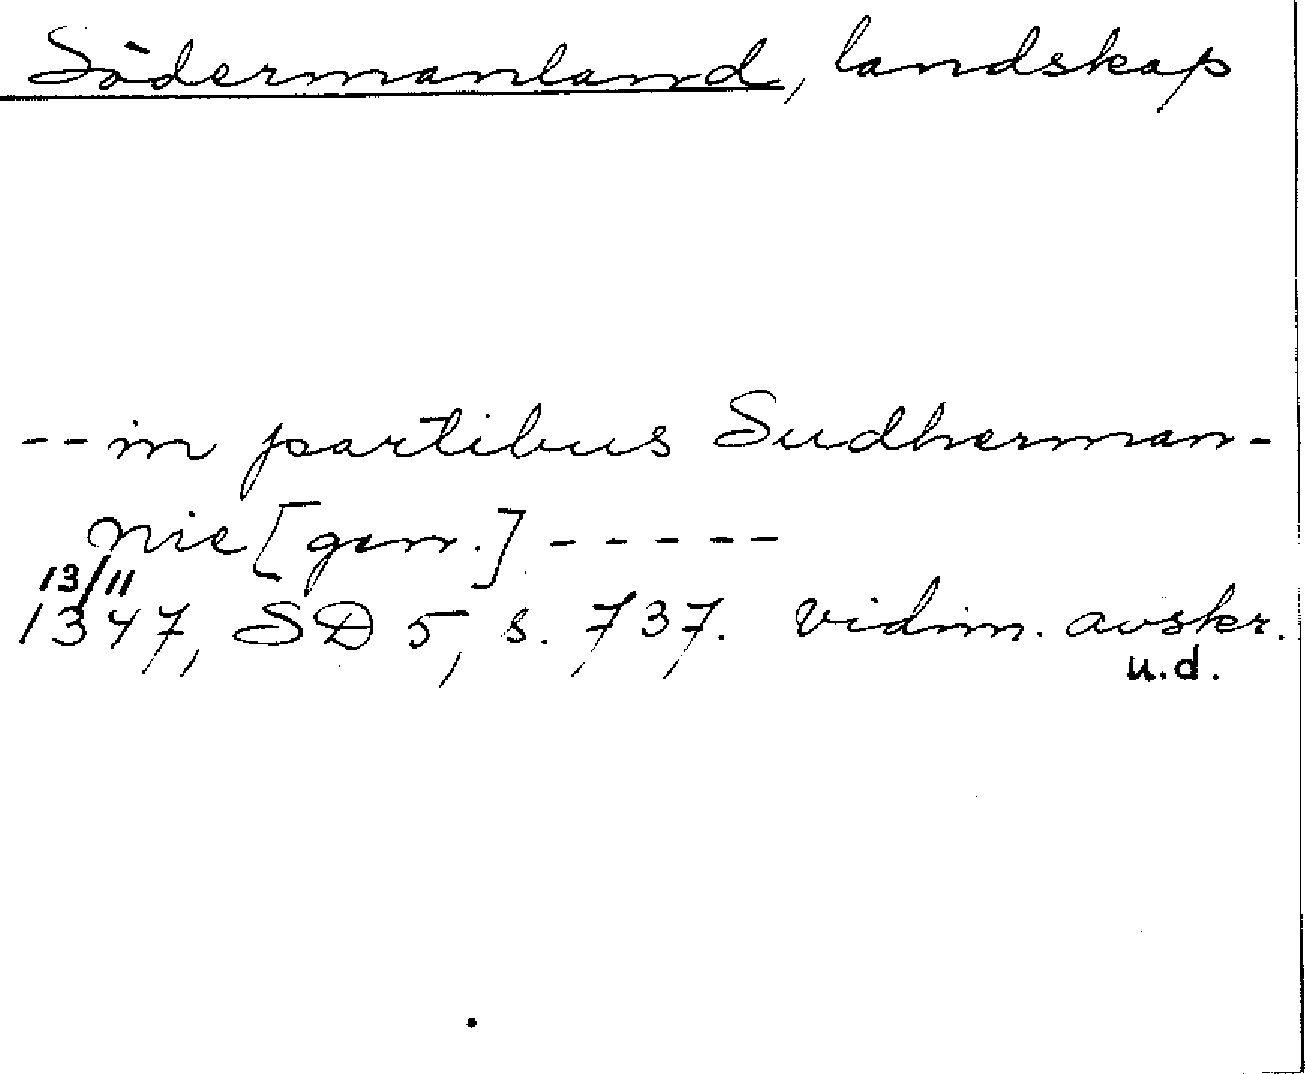 Södermanland, landskap
--in partibus Sudherman-
nie [gen.] -----
13/11
1347, SD 5, s. 737. vidim. avskr.
u.d.